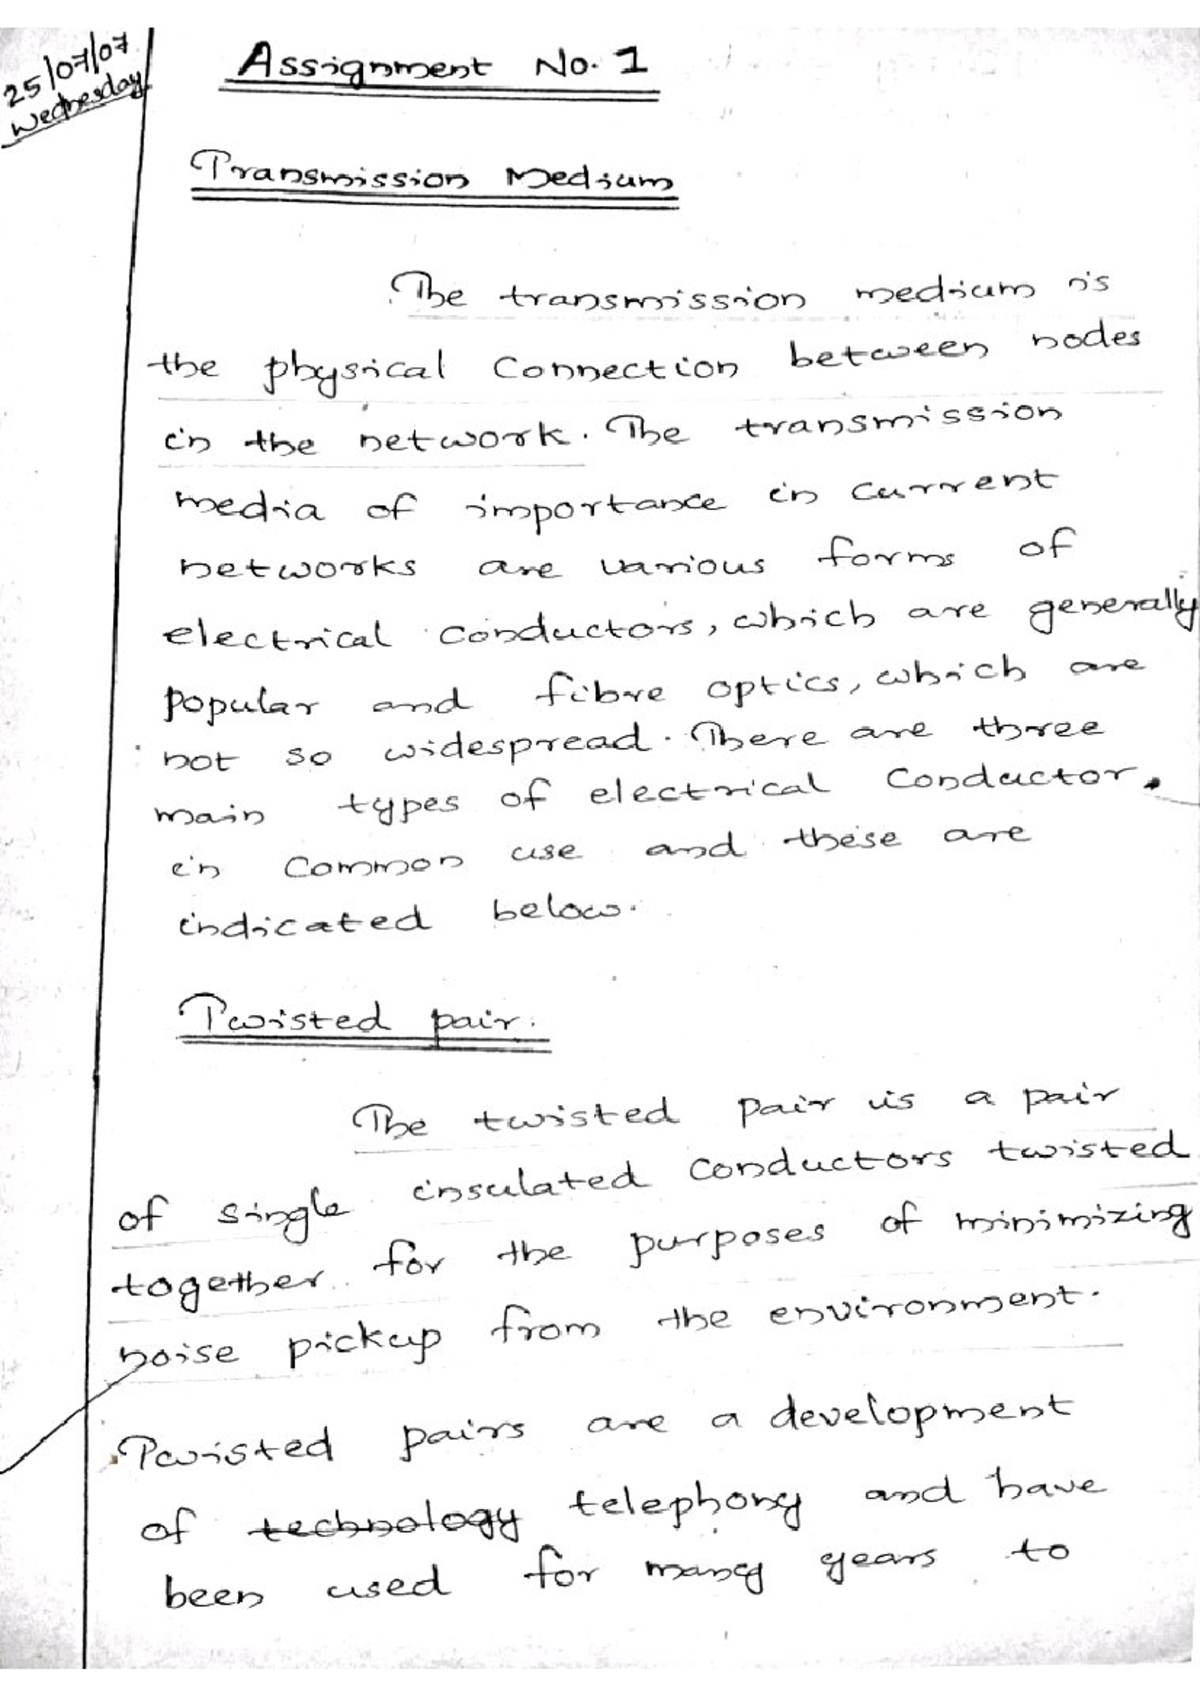 25/07/07
Wednesday
Assignment No. 1
Transmission Medium
The transmission medium is
the physical Connection between nodes
in the network. The transmission
media of importance in current
networks are various forms of
electrical conductors, which are generally
popular and fibre optics, which are
not so widespread. There are three
main types of electrical Conductor.
in Common use and these are
indicated below.
Twisted pair.
The twisted pair is a pair
of single insulated conductors twisted
together for the purposes of minimizing
noise pickup from the environment.
Twisted pairs are a development
of technology telephony and have
been used for many years to